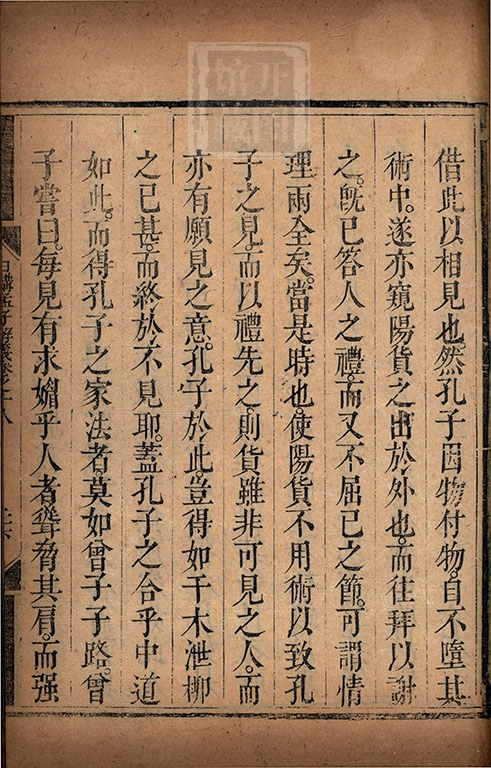 借此以相見也。然孔子因物付物。自不墮其
術中。遂亦窺陽貨之出於外也。而往拜以謝
之。旣已答人之禮。而又不屈已之節。可謂情
理兩全矣。當是時也。使陽貨不用術以致孔
子之見。而以禮先之。則貨雖非可見之人。而
亦有願見之意。孔子於此。豈得如干木泄柳
之已甚。而終於不見耶。蓋孔子之合乎中道
如此。而得孔子之家法者。莫如曾子子路。曾
子嘗曰。每見有求媚乎人者。聳脅其肩。而强
日講孟子解義卷之十八